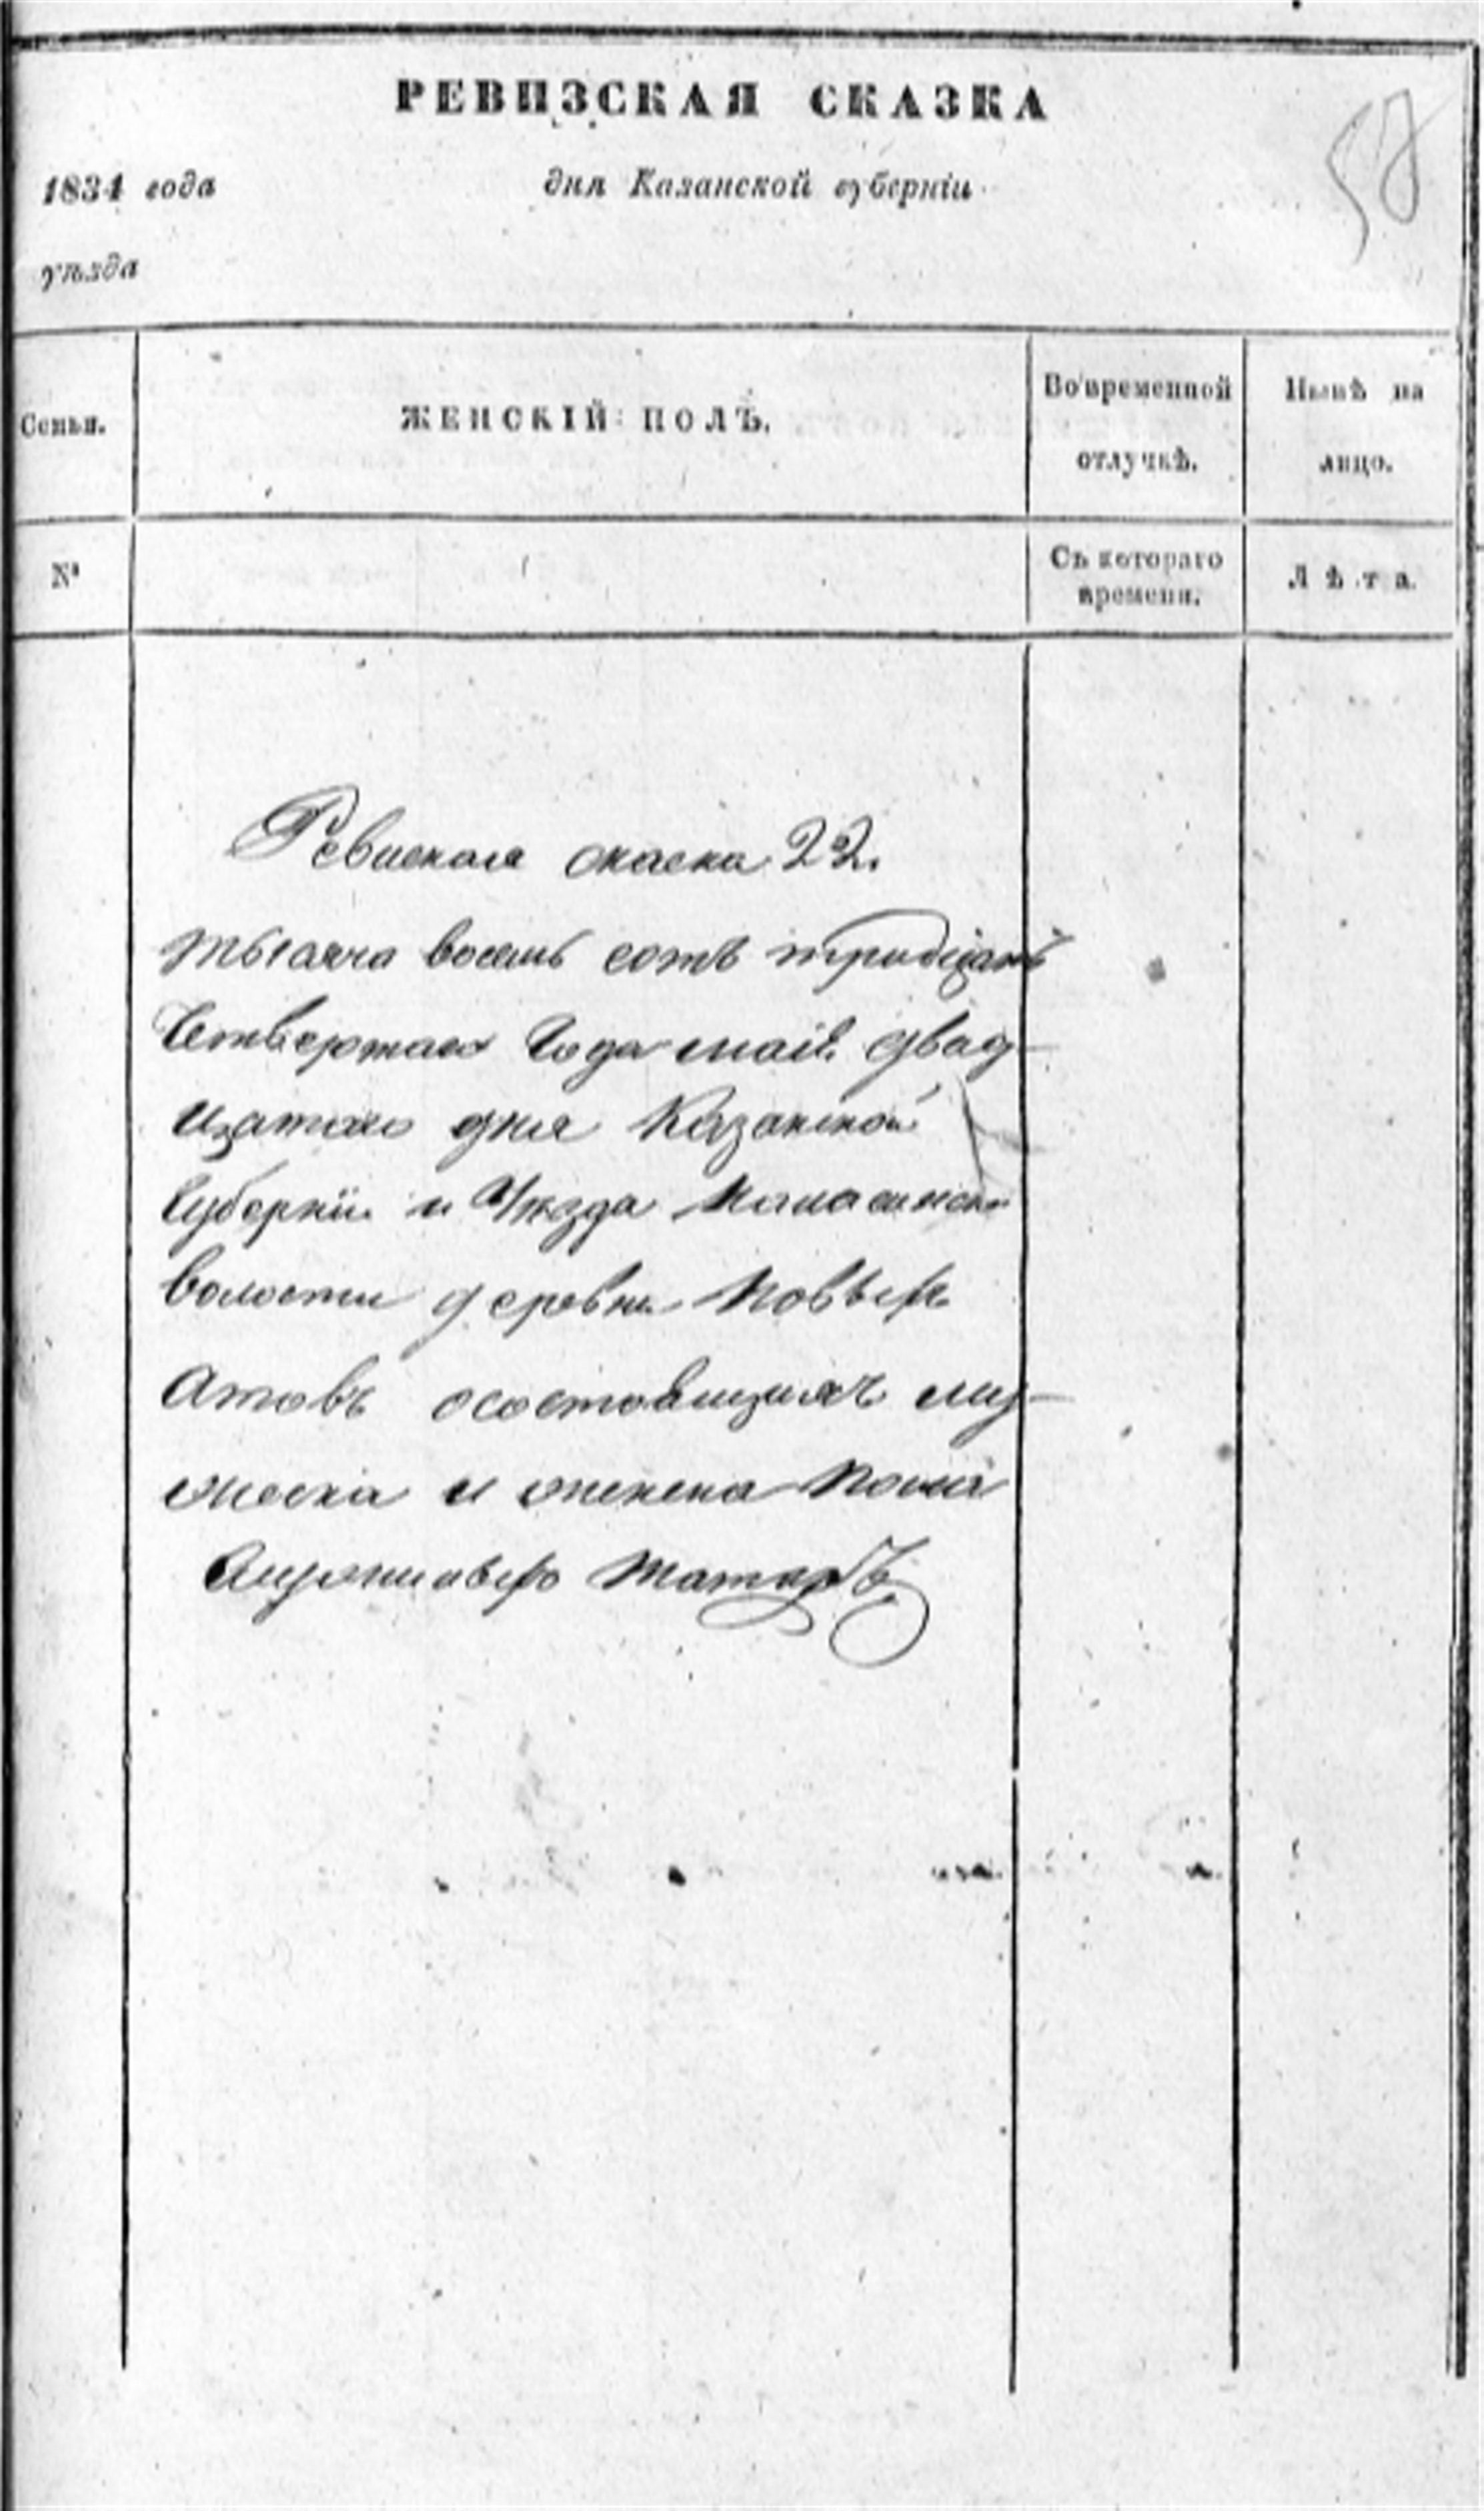 РЕВИЗСКАЯ СКАЗКА
58
1834 года
дня Казанской губерніи
уѣзда
Семьи.
ЖЕНСКІЙ ПОЛЪ.
Во временной
отлучкѣ.
Нынѣ на
лицо.
№
Съ котораго
времени.
Лѣта.
Ревиская скаска 22.
тысяча восемь сотъ тридцать
Четвертаго Года маія двад
цатаго дня Казанской
Губерніи и Уѣзда
волости деревни
Атовъ осостоящихъ му
жеска и женска пола
татаръ